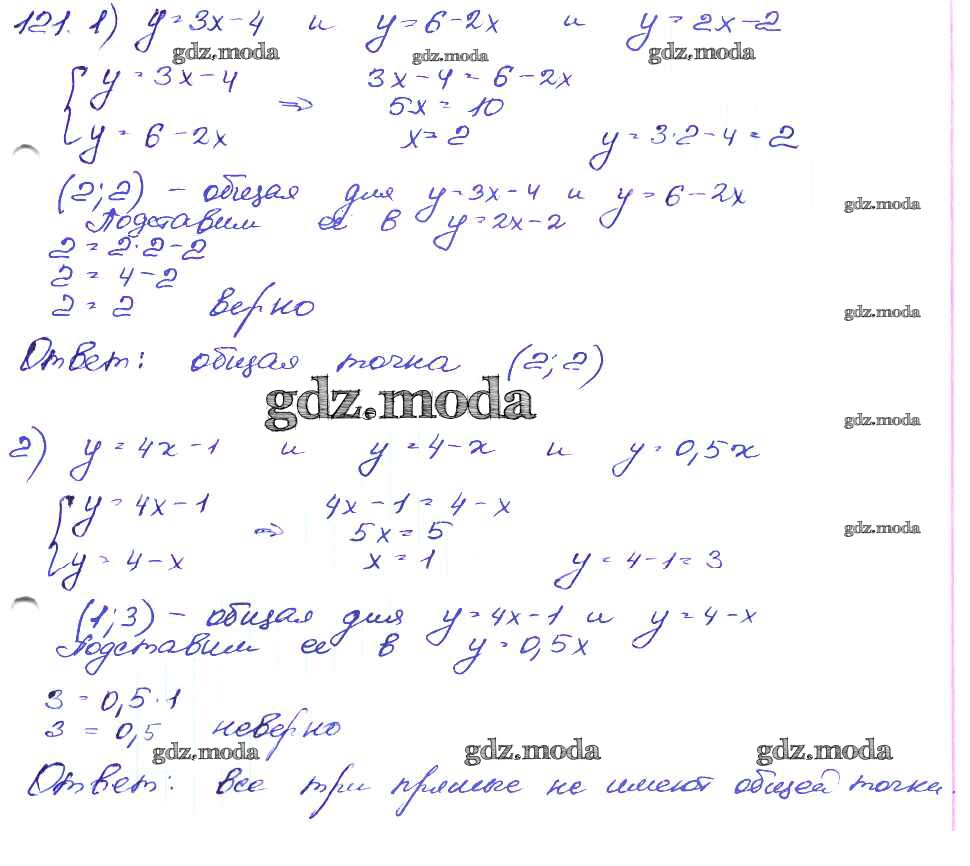 121. 1) y = 3x - 4 и y = 6 - 2x и y = 2x - 2
gdz.moda gdz.moda gdz.moda
{ y = 3x - 4 ⇒ 3x - 4 = 6 - 2x
5x = 10
y = 6 - 2x x = 2 y = 3·2 - 4 = 2
(2; 2) - общая для y = 3x - 4 и y = 6 - 2x
gdz.moda
Подставим ее в y = 2x - 2
2 = 2·2 - 2
2 = 4 - 2
2 = 2 верно
gdz.moda
Ответ: общая точка (2; 2)
gdz.moda
gdz.moda
2) y = 4x - 1 и y = 4 - x и y = 0,5x
{ y = 4x - 1 ⇒ 4x - 1 = 4 - x
5x = 5
gdz.moda
y = 4 - x x = 1 y = 4 - 1 = 3
(1; 3) - общая для y = 4x - 1 и y = 4 - x
Подставим ее в y = 0,5x
3 = 0,5·1
3 = 0,5 неверно
gdz.moda gdz.moda gdz.moda
Ответ: все три прямые не имеют общей точки.